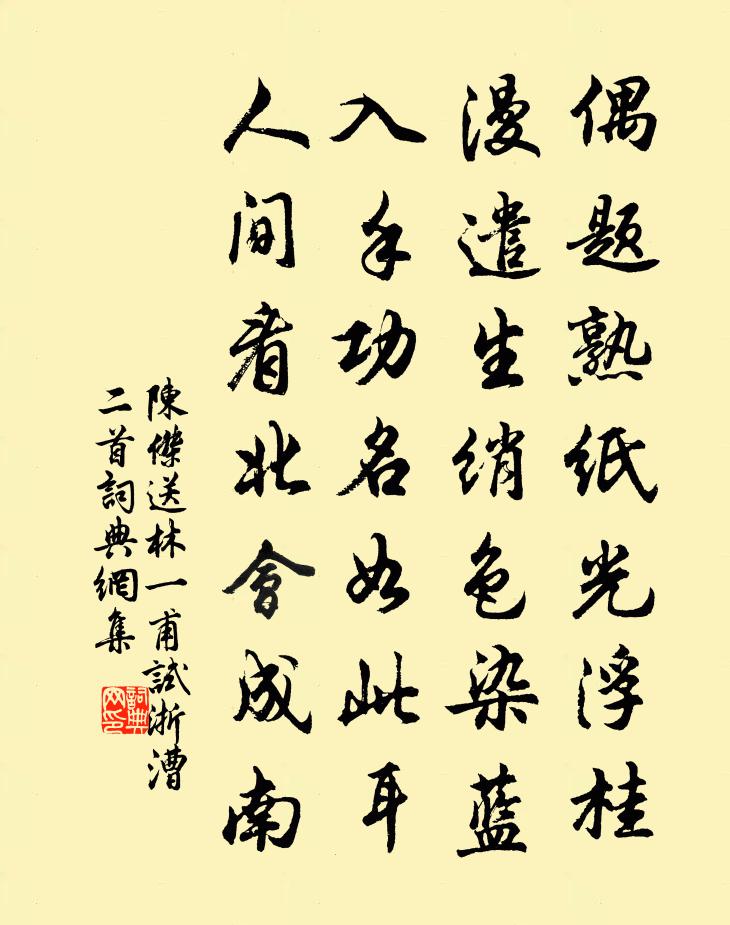 偶題熟紙光浮桂
漫遣生綃色染藍
入手功名如此耳
人间看北會成南
陳傑送林一甫試浙漕
二首詞典網集
詞典网印